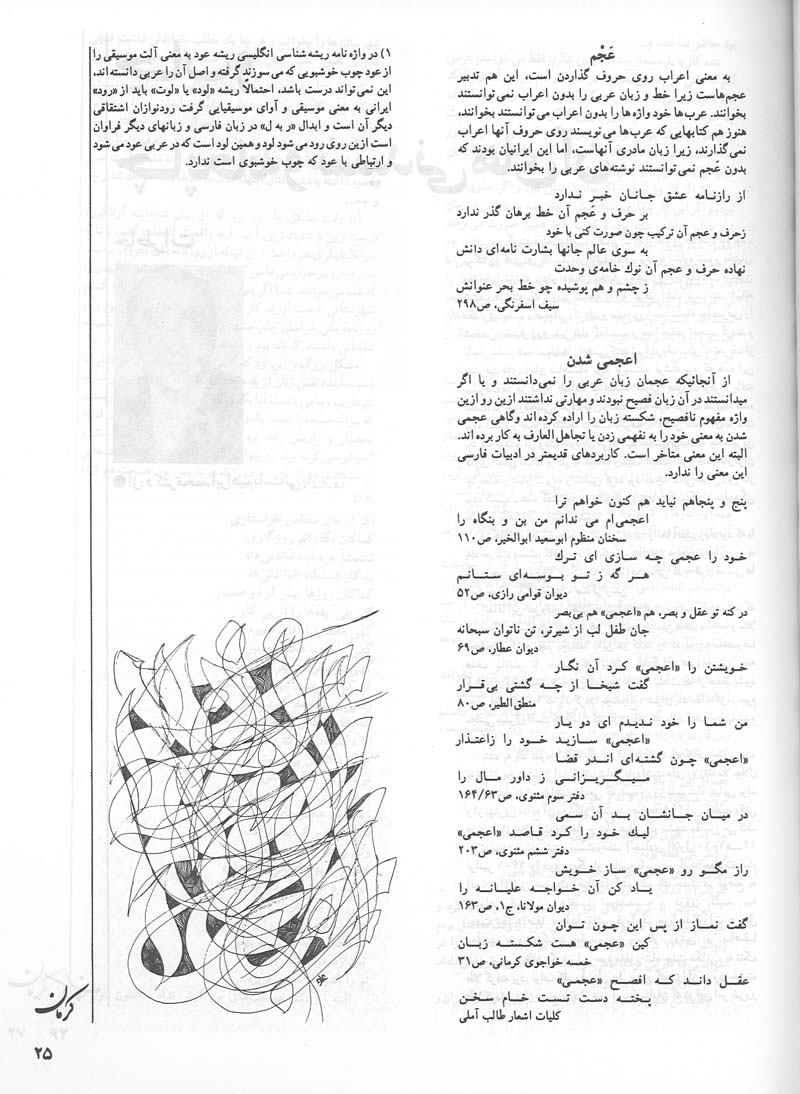 عَجْم
به معنی اعراب روی حروف گذاردن است، این هم تدبیر
عجم‌هاست زیرا خط و زبان عربی را بدون اعراب نمی‌توانستند
بخوانند. عرب‌ها خود واژه‌ها را بدون اعراب می‌توانستند بخوانند،
هنوز هم کتابهایی که عرب‌ها می‌نویسند روی حروف آنها اعراب
نمی‌گذارند، زیرا زبان مادری آنهاست، اما این ایرانیان بودند که
بدون عَجم نمی‌توانستند نوشته‌های عربی را بخوانند.
از رازنامه عشق جانان خبر ندارد
بر حرف و عَجم آن خط برهان گذر ندارد
زحرف و عجم آن ترکیب چون صورت کنی با خود
به سوی عالم جانها بشارت نامه‌ای دانش
نهاده حرف و عجم آن نوك خامه‌ی وحدت
ز چشم و هم پوشیده چو خط بحر عنوانش
سیف اسفرنگی، ص۲۹۸
اعجمی شدن
از آنجائیکه عجمان زبان عربی را نمی‌دانستند و یا اگر
میدانستند در آن زبان فصیح نبودند و مهارتی نداشتند ازین رو ازین
واژه مفهوم نافصیح، شکسته زبان را اراده کرده‌اند وگاهی عجمی
شدن به معنی خود را به نفهمی زدن یا تجاهل العارف به کار برده‌اند.
البته این معنی متاخر است. کاربردهای قدیمتر در ادبیات فارسی
این معنی را ندارد.
پنج و پنجاهم نیاید هم کنون خواهم ترا
اعجمی‌ام می ندانم من بن و بنگاه را
سخنان منظوم ابوسعید ابوالخیر، ص۱۱۰
خود را عجمی چه سازی ای ترك
هر گه ز تو بوسه‌ای ستانم
دیوان قوامی رازی، ص۵۲
در کنه تو عقل و بصر، هم «اعجمی» هم بی‌بصر
جان طفل لب از شیرتر، تن ناتوان سبحانه
دیوان عطار، ص۶۹
خویشتن را «اعجمی» کرد آن نگار
گفت شیخا از چه گشتی بی‌قرار
منطق‌الطیر، ص۸۰
من شما را خود ندیدم ای دو یار
«اعجمی» سازید خود را زاعتذار
«اعجمی» چون گشته‌ای اندر قضا
میگریزانی ز داور مال را
دفتر سوم مثنوی، ص۱۶۴/۶۳
در میان جانشان بد آن سمی
لیك خود را کرد قاصد «اعجمی»
دفتر ششم مثنوی، ص۲۰۳
راز مگو رو «عجمی» ساز خویش
یاد کن آن خواجه علیانه را
دیوان مولانا، ج۱، ص۱۶۳
گفت نماز از پس این چون توان
کین «عجمی» هست شکسته زبان
خمسه خواجوی کرمانی، ص۳۱
عقل داند که افصح «عجمی»
پخته دست تست خام سخن
کلیات اشعار طالب آملی
۱) در واژه نامه ریشه‌شناسی انگلیسی ریشه عود به معنی آلت موسیقی را
از عود چوب خوشبویی که می‌سوزند گرفته و اصل آن را عربی دانسته‌اند،
این نمی‌تواند درست باشد، احتمالاً ریشه «لود» یا «لوت» باید از «رود»
ایرانی به معنی موسیقی و آوای موسیقیایی گرفت رودنوازان اشتقاقی
دیگر آن است و ابدال «ر به ل» در زبان فارسی و زبانهای دیگر فراوان
است ازین روی رود می‌شود لود و همین لود است که در عربی عود می‌شود
و ارتباطی با عود که چوب خوشبوی است ندارد.
کرمان
۲۵